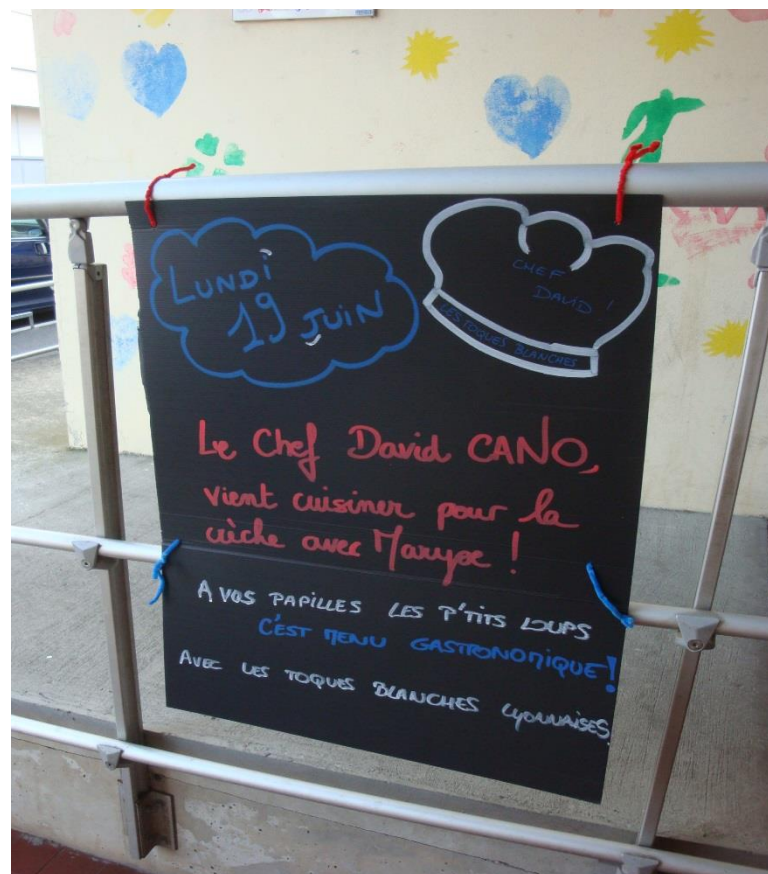 LUNDI
19 JUIN
CHEF
DAVID !
LES TOQUES BLANCHES
Le Chef David CANO,
vient cuisiner pour la
crèche avec Maryse !
A VOS PAPILLES LES P'TITS LOUPS
C'EST MENU GASTRONOMIQUE !
AVEC LES TOQUES BLANCHES LYONNAISES.